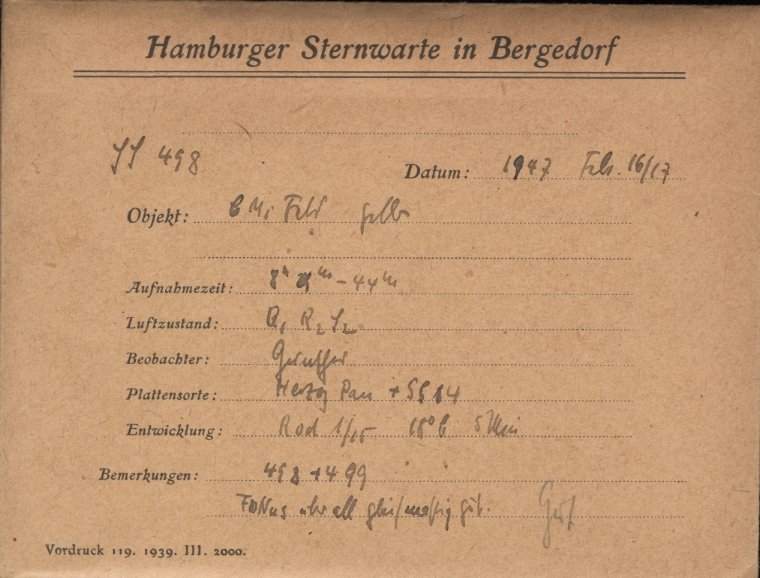 Hamburger Sternwarte in Bergedorf
498
Datum: 1947 Feb. 16/17
Objekt: Feld gelb
Aufnahmezeit: 8h m - 44m
Luftzustand: R2
Beobachter:
Plattensorte: Herzog Pan + SG14
Entwicklung: Rod 1/15 18° 5 Min
Bemerkungen: 498 + 499
Fokus überall gleichmäßig gut.
Vordruck 119. 1939. III. 2000.